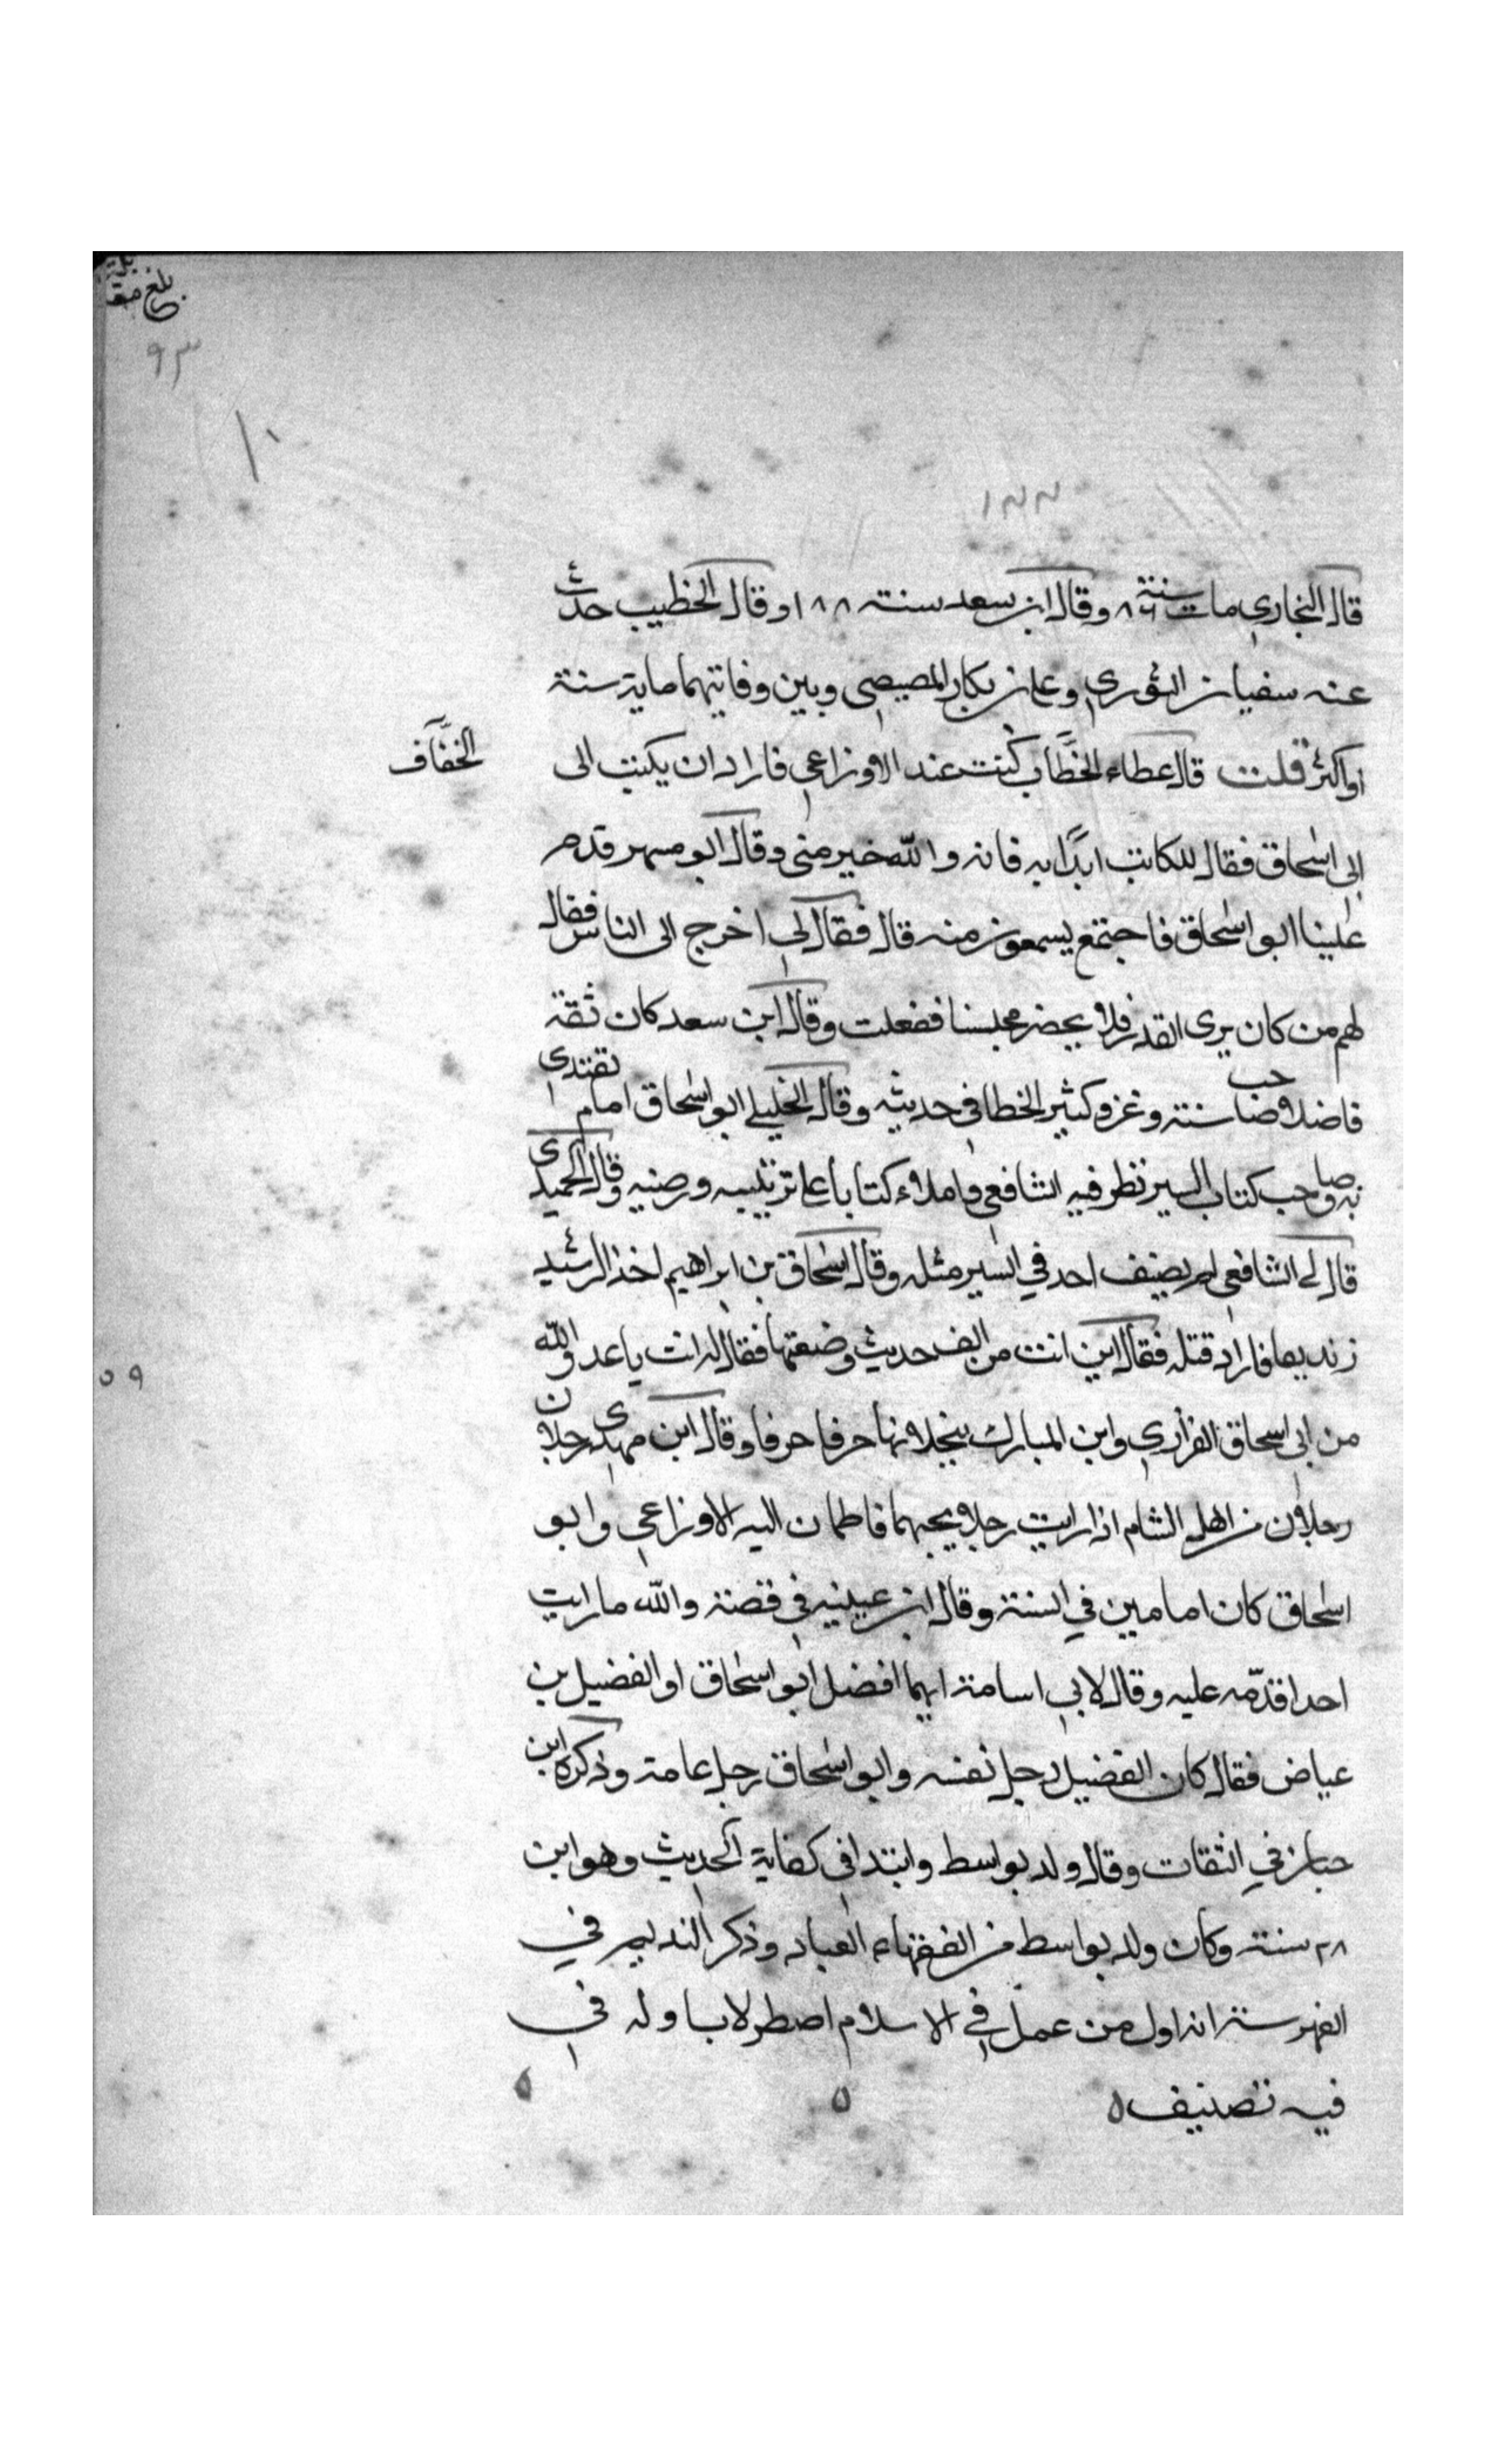 بلغ مقا
بلة
٩٣
١٢٢
قال البخاري مات سنة ٨٦ وقال ابن سعد سنة ١٨٨ وقال الخطيب حدث
عنه سفيان الثوري وعلى بن بكار المصيصى وبين وفاتيهما ماية سنة
او اكثر قلت قال عطاء الخطاف كنت عند الاوزاعي فاراد ان يكتب الى
الخفّاف
ابى اسحاق فقال للكاتب ابدا به فانه والله خير منى وقال ابو مسهر قدم
علينا ابو اسحاق فاجتمع يسمعون منه قال فقال لى اخرج الى الناس فقال
لهم من كان يرى القدر فلا يحضر مجلسنا ففعلت وقال ابن سعد كان ثقة
فاضلا صاحب سنة وغزو كثير الخطا في حديثه وقال الخليلي ابو اسحاق امام يقتدى
به وصاحب كتاب السير نظر فيه الشافعي واملاء كتابا على ترتيبه ورضيه وقال الحميدى
قال لى الشافعي لم يصنف احد في السير مثله وقال اسحاق بن ابراهيم اخذ الرشيد
زنديقا فاراد قتله فقال اين انت من الف حديث وضعتها فقال له انت يا عدو الله
٥٩
من ابى اسحاق الفزارى وابن المبارك ينخلانها حرفا حرفا وقال ابن مهدى رجلان
رجلان من اهل الشام اذا رايت رجلا يحبهما فاطمان اليه الاوزاعي وابو
اسحاق كان امامين في السنة وقال ابن عيينه فى قصة والله ما رايت
احدا اقدّمه عليه وقال لابي اسامة ايهما افضل ابو اسحاق او الفضيل بن
عياض فقال كان الفضيل رجل نفسه وابو اسحاق رجل عامة وذكره ابن
حبان في الثقات وقال ولد بواسط وابتدا فى كفاية الحديث وهو ابن
٢٨ سنة وكان ولد بواسط من الفقهاء العباد وذكر النديم في
الفهرست انه اول من عمل في الاسلام اصطرلابا وله في
فيه تصنيف ٥ ٥ ٥